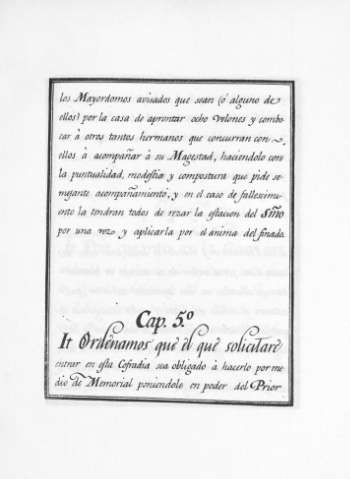 los Mayordomos avisados que sean (ó alguno de
ellos) por la casa de aprontar ocho velones y combo
car à otros tantos hermanos que concurran con
ellos à acompañar à su Magestad, haciendolo con
la puntualidad, modestia y compostura que pide se
mejante acompañamiento, y en el caso de fallecimi
ento la tendran todos de rezar la estacion del SSmo
por una vez y aplicarla por el anima del finado.
Cap. 5.º
It Ordenamos que él que solicitare
entrar en esta Cofradia sea obligado à hacerlo por me
dio de Memorial poniendolo en poder del Prior